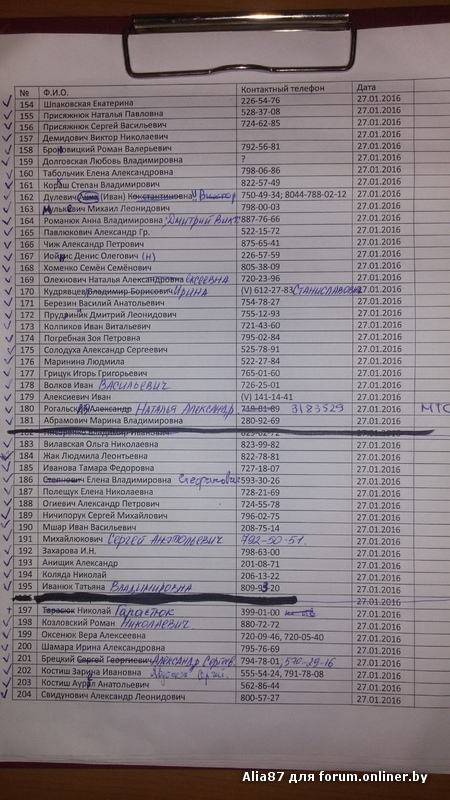 № Ф.И.О. Контактный телефон Дата
154 Шпаковская Екатерина 226-54-76 27.01.2016
155 Присяжнюк Наталья Павловна 528-37-08 27.01.2016
156 Присяжнюк Сергей Васильевич 724-62-85 27.01.2016
157 Демидович Виктор Николаевич 27.01.2016
158 Броновицкий Роман Валерьевич 792-56-81 27.01.2016
159 Долговская Любовь Владимировна ? 27.01.2016
160 Табольчик Елена Александровна 798-06-86 27.01.2016
161 Степан Владимирович 822-57-49 27.01.2016
162 Дулевич (Иван) Константинович Виктор 750-49-34; 8044-788-02-12 27.01.2016
163 Михаил Леонидович 798-00-03 27.01.2016
164 Романюк Анна Владимировна Дмитрий Викт. 887-76-66 27.01.2016
165 Павлюкович Александр Гр. 522-15-72 27.01.2016
166 Чиж Александр Петрович 875-65-41 27.01.2016
167 Денис Олегович (н) 226-57-59 27.01.2016
168 Хоменко Семён Семёнович 805-38-09 27.01.2016
169 Олехнович Наталья Александровна Евсеевна 720-23-96 27.01.2016
170 Кудрявцев Владимир Борисович Ирина (V) 612-27-83 Станиславовна 27.01.2016
171 Березин Василий Анатольевич 754-78-27 27.01.2016
172 Дмитрий Леонидович 755-12-93 27.01.2016
173 Колпиков Иван Витальевич 721-43-60 27.01.2016
174 Погребная Зоя Петровна 795-02-84 27.01.2016
175 Солодуха Александр Сергеевич 525-78-91 27.01.2016
176 Маринина Людмила 522-27-84 27.01.2016
177 Грицук Игорь Григорьевич 765-01-60 27.01.2016
178 Волков Иван Васильевич 726-25-01 27.01.2016
179 Алексиевич Иван (V) 141-14-41 27.01.2016
180 Александр Наталья Александр. 3183529 27.01.2016 МТС
181 Абрамович Марина Владимировна 280-92-69 27.01.2016
27.01.2016
183 Вилавская Ольга Николаевна 823-99-82 27.01.2016
184 Жак Людмила Леонтьевна 822-78-81 27.01.2016
185 Иванова Тамара Федоровна 727-18-07 27.01.2016
186 Станович Елена Владимировна 593-30-26 27.01.2016
187 Полещук Елена Николаевна 728-21-69 27.01.2016
188 Огиевич Александр Петрович 724-55-78 27.01.2016
189 Ничипорук Сергей Михайлович 796-02-75 27.01.2016
190 Мшар Иван Васильевич 208-75-14 27.01.2016
191 Михайлюкович Сергей Анатольевич 792-50-51 27.01.2016
192 Захарова И.Н. 798-63-00 27.01.2016
193 Анищик Александр 201-08-71 27.01.2016
194 Коляда Николай 206-13-22 27.01.2016
195 Иванюк Татьяна Владимировна 27.01.2016
197 Тарасюк Николай 399-01-00 27.01.2016
198 Козловский Роман Николаевич 880-72-72 27.01.2016
199 Оксенюк Вера Алексеевна 720-09-46, 720-05-40 27.01.2016
200 Шамара Ирина Александровна 795-76-69 27.01.2016
201 Брецкий Сергей Георгиевич Александр Сергеев. 794-78-01, 570-29-16 27.01.2016
202 Костиш Зарина Ивановна 555-54-24, 791-78-08 27.01.2016
203 Костиш Анатольевич 562-86-44 27.01.2016
204 Свидунович Александр Леонидович 800-57-27 27.01.2016
Alia87 для forum.onliner.by